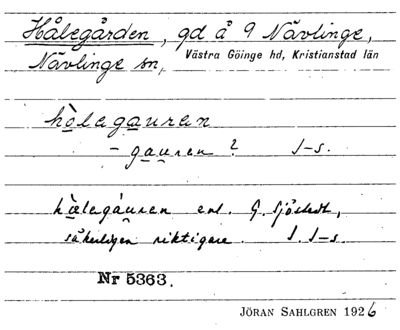 Hålegården, gd å 9 Nävlinge,
Nävlinge sn, Västra Göinge hd, Kristianstad län
hòlegauren
- gauren? J-s.
hòlegáuren enl. G. Sjöstedt,
säkerligen riktigare. J. J-s.
Nr 5363.
JÖRAN SAHLGREN 1926